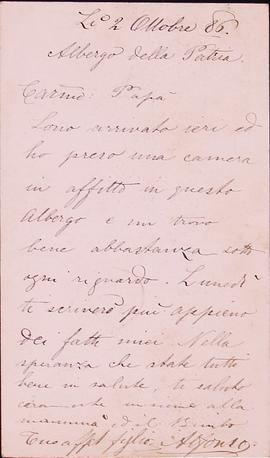 Li 2 Ottobre 86.
Albergo della Patria.
Carmo: Papà
Sono arrivato ieri ed
ho preso una camera
in affitto in questo
Albergo e mi trovo
bene abbastanza sotto
ogni riguardo. Lunedì
ti scriverò più appieno
dei fatti miei Nella
speranza che state tutti
bene in salute, ti saluto
insieme alla
mamma ed il Bimbo
Tuo aff figlio Alfonso